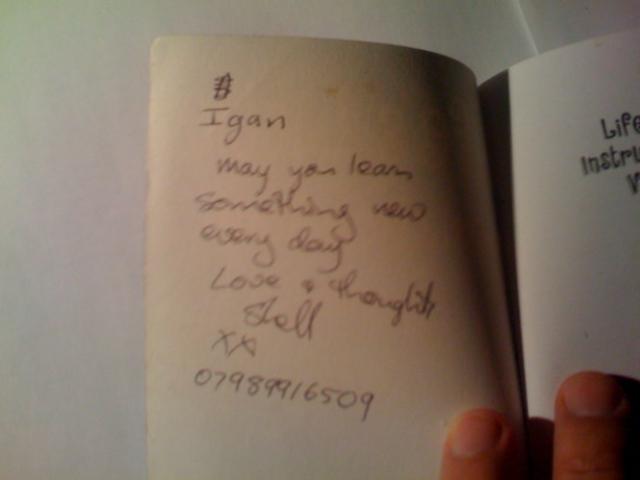 Igan
may you learn
something new
every day
Love & thoughts
Shell
xx
07989916509
Life
Instru